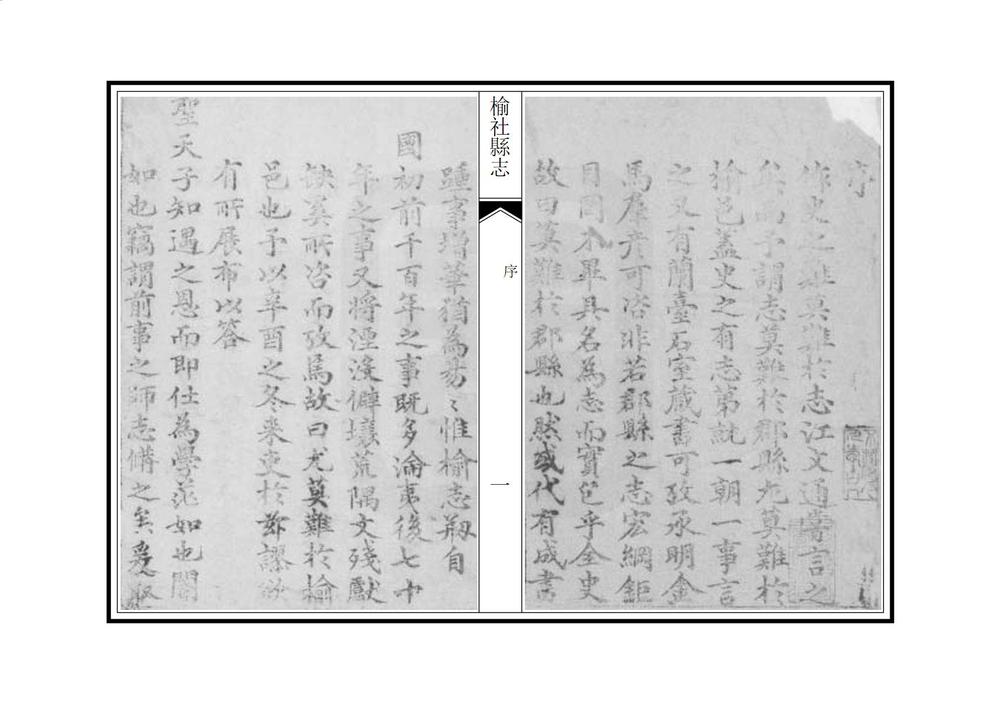 序
作史之難莫難於志江文通嘗言之
矣而予謂志莫難於郡縣尤莫難於
榆邑蓋史之有志第就一朝一事言
之又有蘭臺石室藏書可攷承明金
馬羣彥可咨非若郡縣之志宏綱鉅
目罔不畢具名為志而實包乎全史
故曰莫難於郡縣也然或代有成書
榆社縣志
序
一
踵事增華猶為易〻惟榆志刱自
國初前千百年之事既多淪夷後七十
年之事又將湮沒僻壤荒隅文殘獻
缺奚所咨而攷焉故曰尤莫難於榆
邑也予以辛酉之冬來吏於茲謬欲
有所展布以答
聖天子知遇之恩而即仕為學茫如也聞
如也竊謂前事之師志備之矣爰取